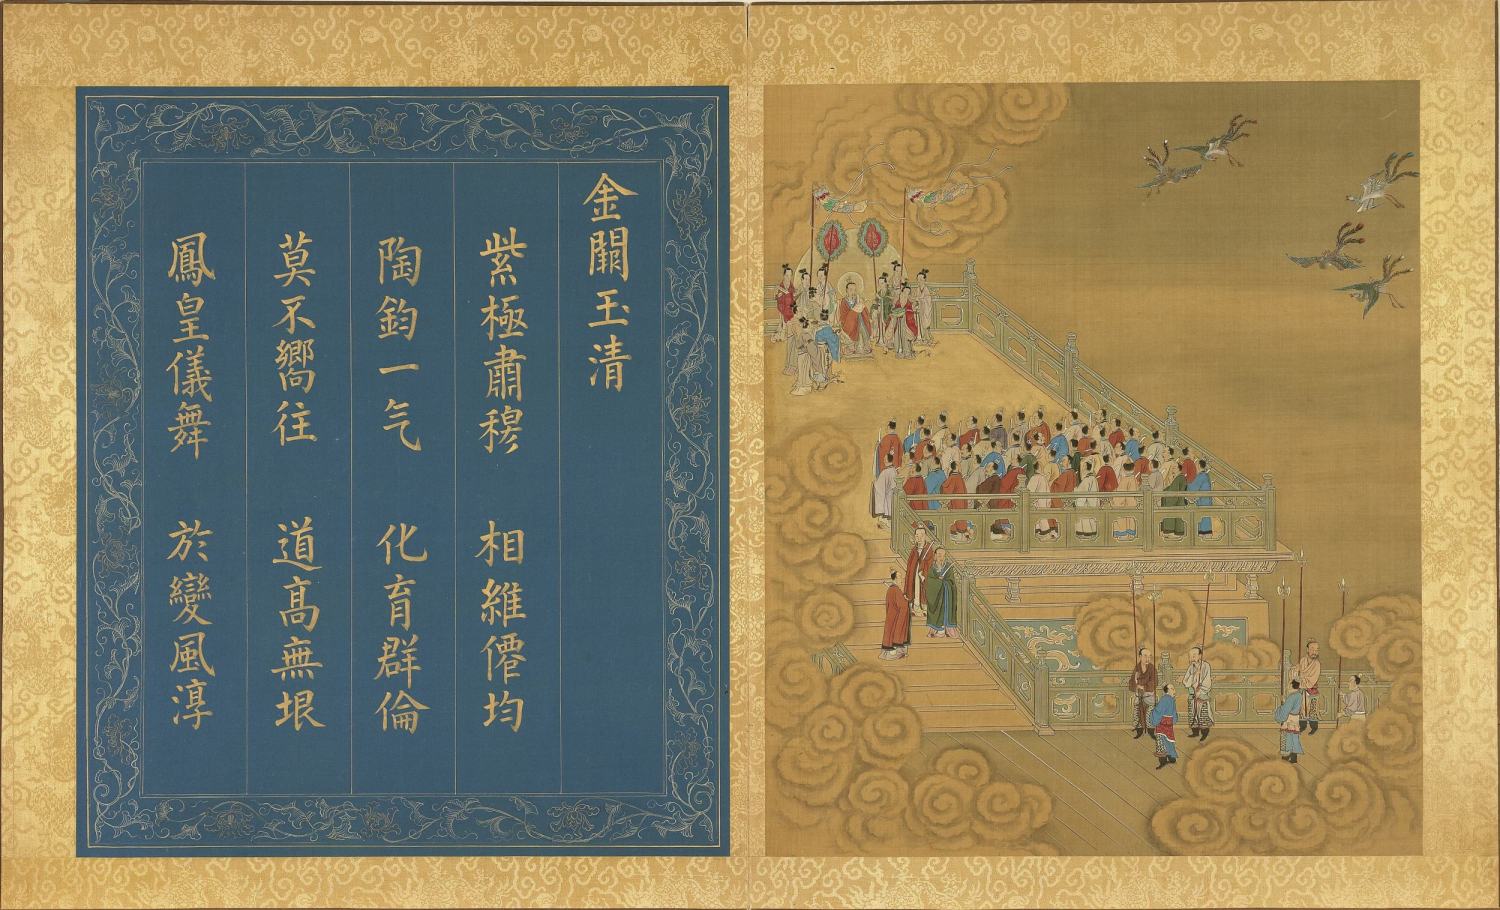 金闕玉清
紫極肅穆 相維僊均
陶鈞一气 化育群倫
莫不嚮往 道高無垠
鳳皇儀舞 於變風淳